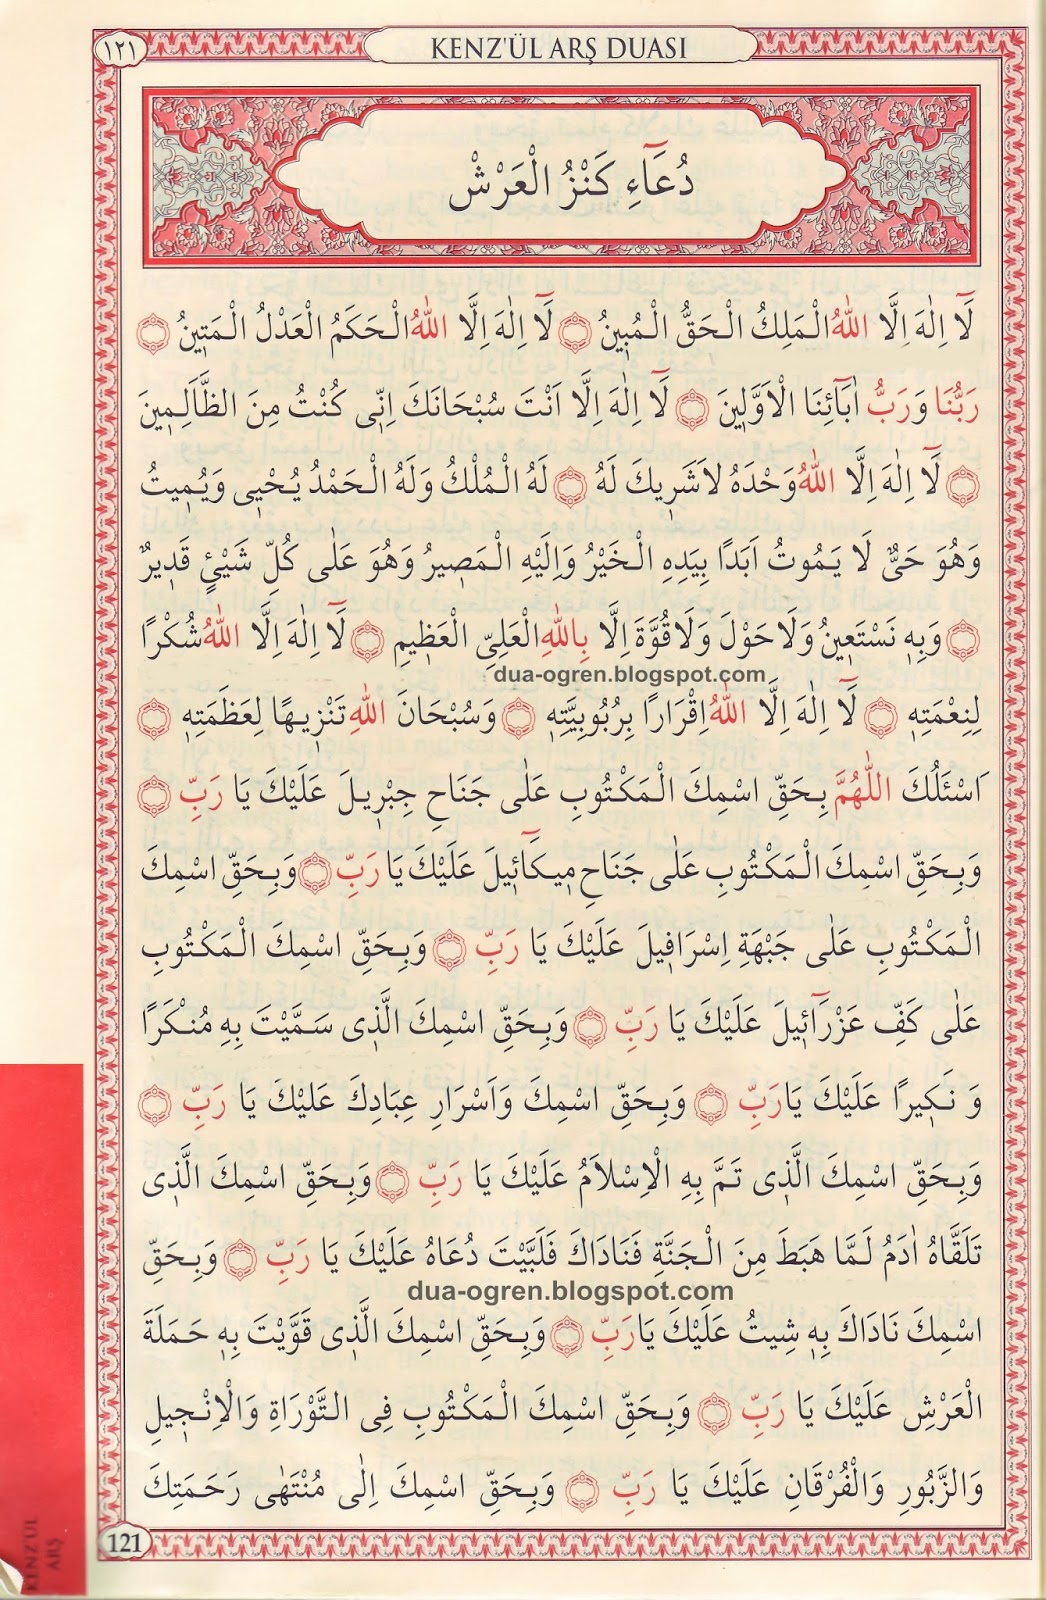 ١٢١
KENZ'ÜL ARŞ DUASI
دُعَآءِ كَنْزُ الْعَرْشْ
لَٓا اِلٰهَ اِلَّا اللّٰهُ الْمَلِكُ الْحَقُّ الْمُبٖينُ لَٓا اِلٰهَ اِلَّا اللّٰهُ الْحَكَمُ الْعَدْلُ الْمَتٖينُ
رَبُّنَا وَرَبُّ اٰبَائِنَا الْاَوَّلٖينَ لَٓا اِلٰهَ اِلَّا اَنْتَ سُبْحَانَكَ اِنّٖى كُنْتُ مِنَ الظَّالِمٖينَ
لَٓا اِلٰهَ اِلَّا اللّٰهُ وَحْدَهُ لَاشَرٖيكَ لَهُ لَهُ الْمُلْكُ وَلَهُ الْحَمْدُ يُحْيٖى وَيُمٖيتُ
وَهُوَ حَىٌّ لَا يَمُوتُ اَبَدًا بِيَدِهِ الْخَيْرُ وَاِلَيْهِ الْمَصٖيرُ وَهُوَ عَلٰى كُلِّ شَيْئٍ قَدٖيرٌ
وَبِهٖ نَسْتَعٖينُ وَلَاحَوْلَ وَلَاقُوَّةَ اِلَّا بِاللّٰهِ الْعَلِىِّ الْعَظٖيمِ لَٓا اِلٰهَ اِلَّا اللّٰهُ شُكْرًا
dua-ogren.blogspot.com
لِنِعْمَتِهٖ لَٓا اِلٰهَ اِلَّا اللّٰهُ اِقْرَارًا بِرُبُوبِيَّتِهٖ وَسُبْحَانَ اللّٰهِ تَنْزٖيهًا لِعَظَمَتِهٖ
اَسْئَلُكَ اللّٰهُمَّ بِحَقِّ اسْمِكَ الْمَكْتُوبِ عَلٰى جَنَاحِ جِبْرٖيلَ عَلَيْكَ يَا رَبِّ
وَبِحَقِّ اسْمِكَ الْمَكْتُوبِ عَلٰى جَنَاحِ مٖيكَآئٖيلَ عَلَيْكَ يَا رَبِّ وَبِحَقِّ اسْمِكَ
الْمَكْتُوبِ عَلٰى جَبْهَةِ اِسْرَافٖيلَ عَلَيْكَ يَا رَبِّ وَبِحَقِّ اسْمِكَ الْمَكْتُوبِ
عَلٰى كَفِّ عَزْرَآئٖيلَ عَلَيْكَ يَا رَبِّ وَبِحَقِّ اسْمِكَ الَّذٖى سَمَّيْتَ بِهِ مُنْكَرًا
وَ نَكٖيرًا عَلَيْكَ يَارَبِّ وَبِحَقِّ اسْمِكَ وَاَسْرَارِ عِبَادِكَ عَلَيْكَ يَا رَبِّ
وَبِحَقِّ اسْمِكَ الَّذٖى تَمَّ بِهِ الْاِسْلَامُ عَلَيْكَ يَا رَبِّ وَبِحَقِّ اسْمِكَ الَّذٖى
تَلَقَّاهُ اٰدَمُ لَمَّا هَبَطَ مِنَ الْجَنَّةِ فَنَادَاكَ فَلَبَّيْتَ دُعَاهُ عَلَيْكَ يَا رَبِّ وَبِحَقِّ
dua-ogren.blogspot.com
اسْمِكَ نَادَاكَ بِهٖ شِيتُ عَلَيْكَ يَارَبِّ وَبِحَقِّ اسْمِكَ الَّذٖى قَوَّيْتَ بِهٖ حَمَلَةَ
الْعَرْشِ عَلَيْكَ يَا رَبِّ وَبِحَقِّ اسْمِكَ الْمَكْتُوبِ فِى التَّوْرَاةِ وَالْاِنْجٖيلِ
وَالزَّبُورِ وَالْفُرْقَانِ عَلَيْكَ يَا رَبِّ وَبِحَقِّ اسْمِكَ اِلٰى مُنْتَهٰى رَحَمَتِكَ
121
KENZ'ÜL
ARŞ